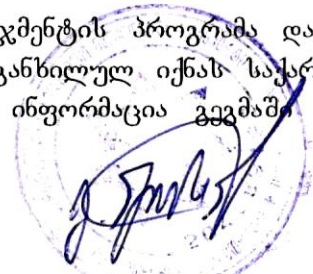 ჯმენტის პროგრამა და
განხილულ იქნას საქარ
ინფორმაცია გეგმაში